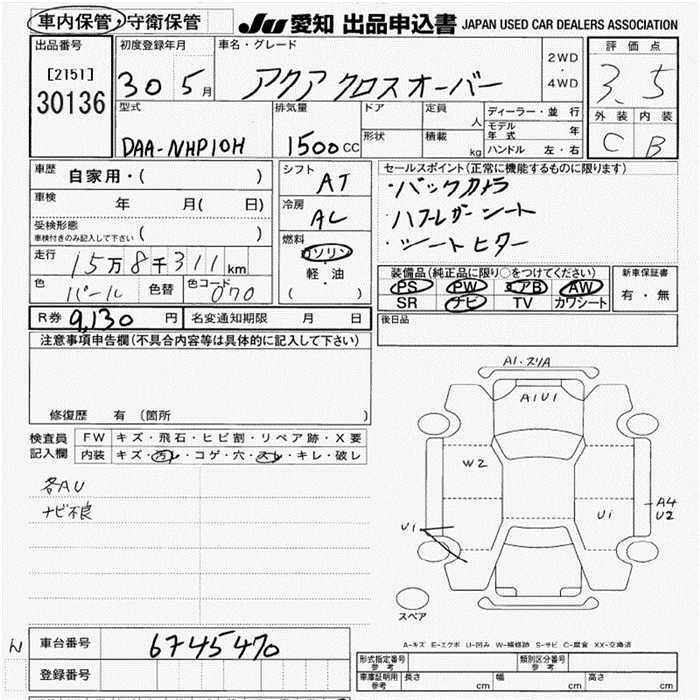 車内保管・守衛保管 JU 愛知 出品申込書 JAPAN USED CAR DEALERS ASSOCIATION
出品番号 初度登録年月 車名・グレード 評価点
[2151] 30 5月 アクア クロスオーバー 2WD・4WD 3.5
30136
外装 内装
C B
型式 排気量 ドア 定員 人 ディーラー・並行
DAA-NHP10H 1500cc 形状 積載 kg モデル年式 年
ハンドル 左・右
車歴 自家用・( )
シフト AT
セールスポイント(正常に機能するものに限ります)
・バックカメラ
・ハーフレザーシート
・シートヒーター
車検 年 月( 日)
冷房 AC
受検形態 車検付きのみ記入して下さい ( )
燃料 ガソリン
軽・油
( )
走行 15万8千311km
色 パール 色替 色コード 070
装備品(純正品に限り○をつけてください) 新車保証書
PS PW エアB AW 有・無
SR ナビ TV カワシート
R券 9,130円 名変通知期限 月 日
後日品
注意事項申告欄(不具合内容等は具体的に記入して下さい)
修復歴 有 (箇所 )
検査員記入欄 FW キズ・飛石・ヒビ割・リペア跡・X要
内装 キズ・汚レ・コゲ・穴・スレ・キレ・破レ
各AU
ナビ不良
A1.スリA
A1U1
W2
U1
A4
U2
U1
スペア
A-キズ E-エクボ U-凹み W-補修跡 S-サビ C-腐食 XX-交換済
車台番号 6745470
登録番号
形式指定番号 参考 類別区分番号 参考
車庫証明用 参考 長さ cm 幅 cm 高さ cm